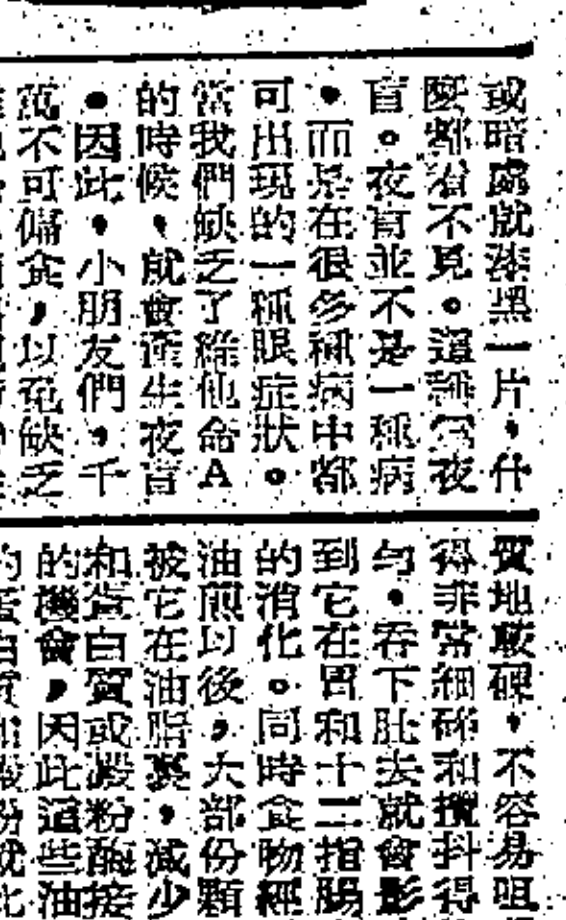 或暗處就漆黑一片，什
麼都看不見。這種叫夜
盲。夜盲並不是一種病
，而是在很多種病中都
可出現的一種眼症狀。
當我們缺乏了維他命A
的時候，就會產生夜盲
。因此，小朋友們，千
萬不可偏食，以免缺乏
質地較硬，不容易咀
得非常細碎和攪抖得
勻，吞下肚去就會影
到它在胃和十二指腸
的消化。同時食物經
油煎以後，大部份顆
被它在油脂裏，減少
和蛋白質或澱粉酶接
的機會，因此這些油